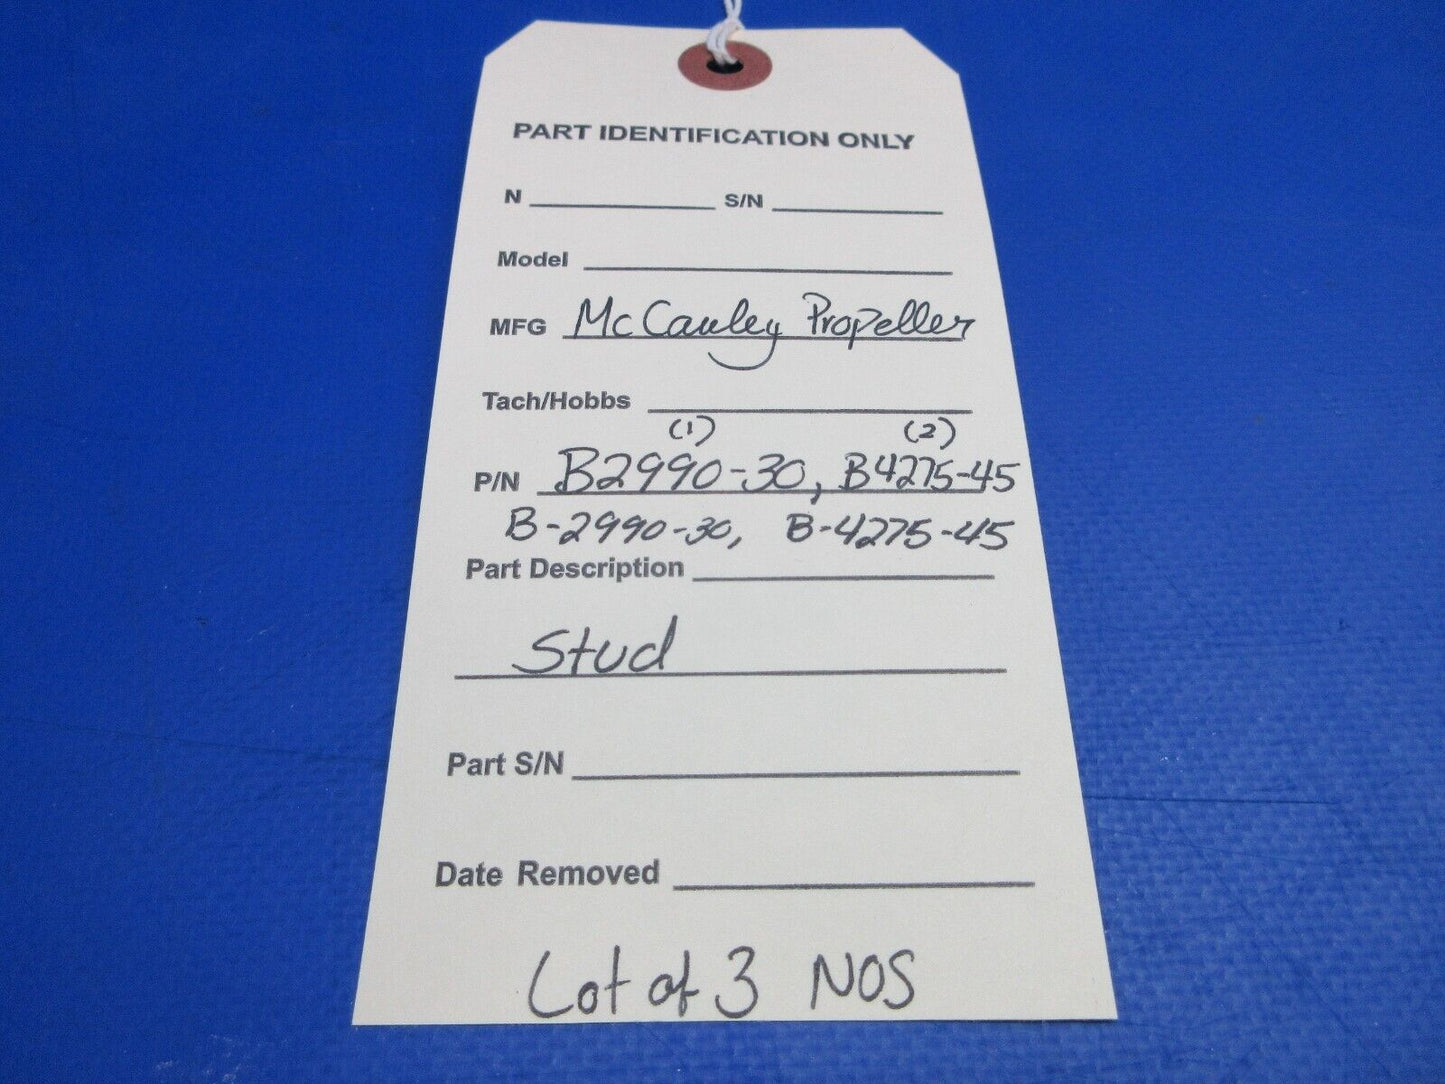 PART IDENTIFICATION ONLY
N S/N
Model
MFG McCauley Propeller
Tach/Hobbs
(1) (2)
P/N B2990-30, B4275-45
B-2990-30, B-4275-45
Part Description
Stud
Part S/N
Date Removed
Lot of 3 NOS